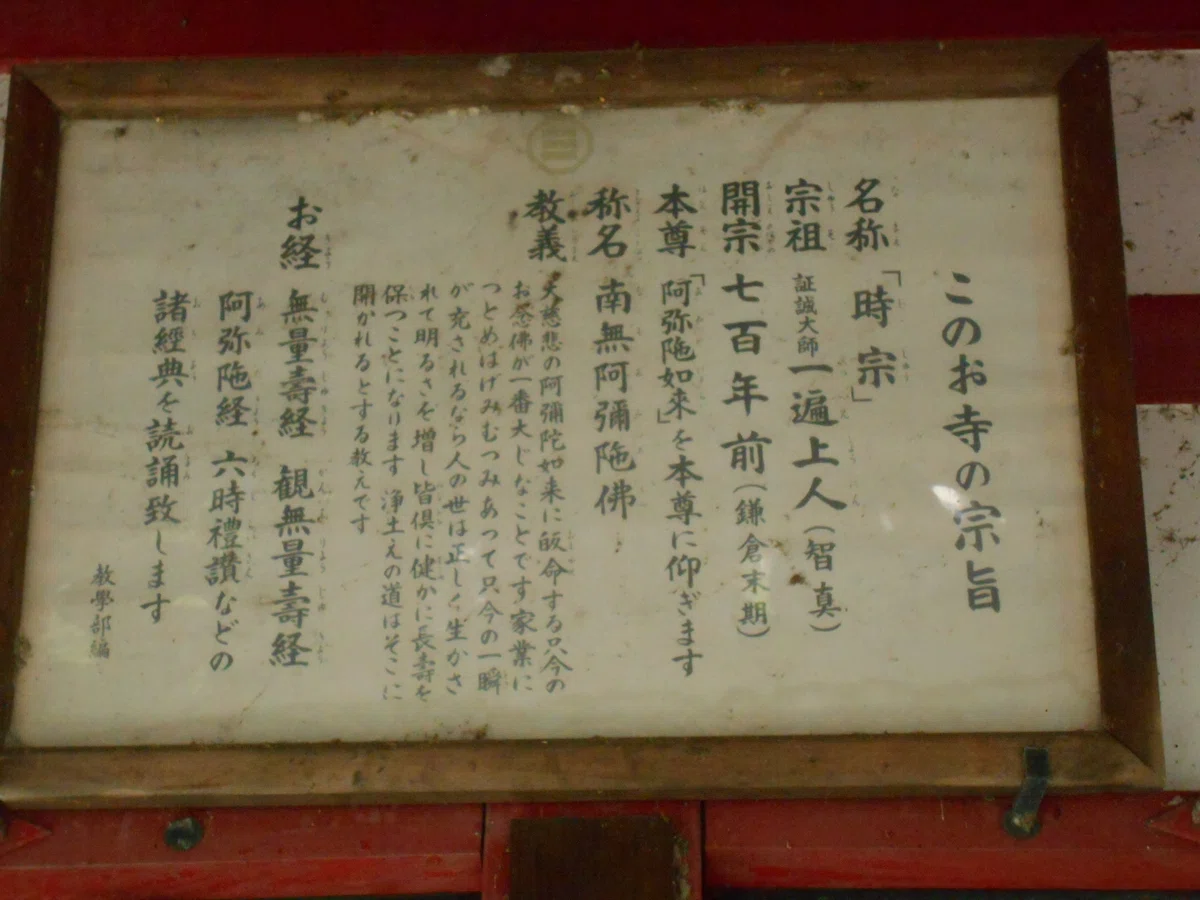 このお寺の宗旨
名称「時宗」
宗祖 証誠大師 一遍上人(智真)
開宗 七百年前(鎌倉末期)
本尊「阿弥陁如来」を本尊に仰ぎます
称名 南無阿彌陁佛
教義 大慈悲の阿彌陀如来に皈命する只今の
お念佛が一番大じなことです家業に
つとめはげみむつみあって只今の一瞬
が充されるなら人の世は正しく生かさ
れて明るさを増し皆倶に健かに長壽を
保つことになります 浄土えの道はそこに
開かれるとする教えです
お経 無量壽経 観無量壽経
阿弥陁経 六時禮讃などの
諸經典を読誦致します
教學部編